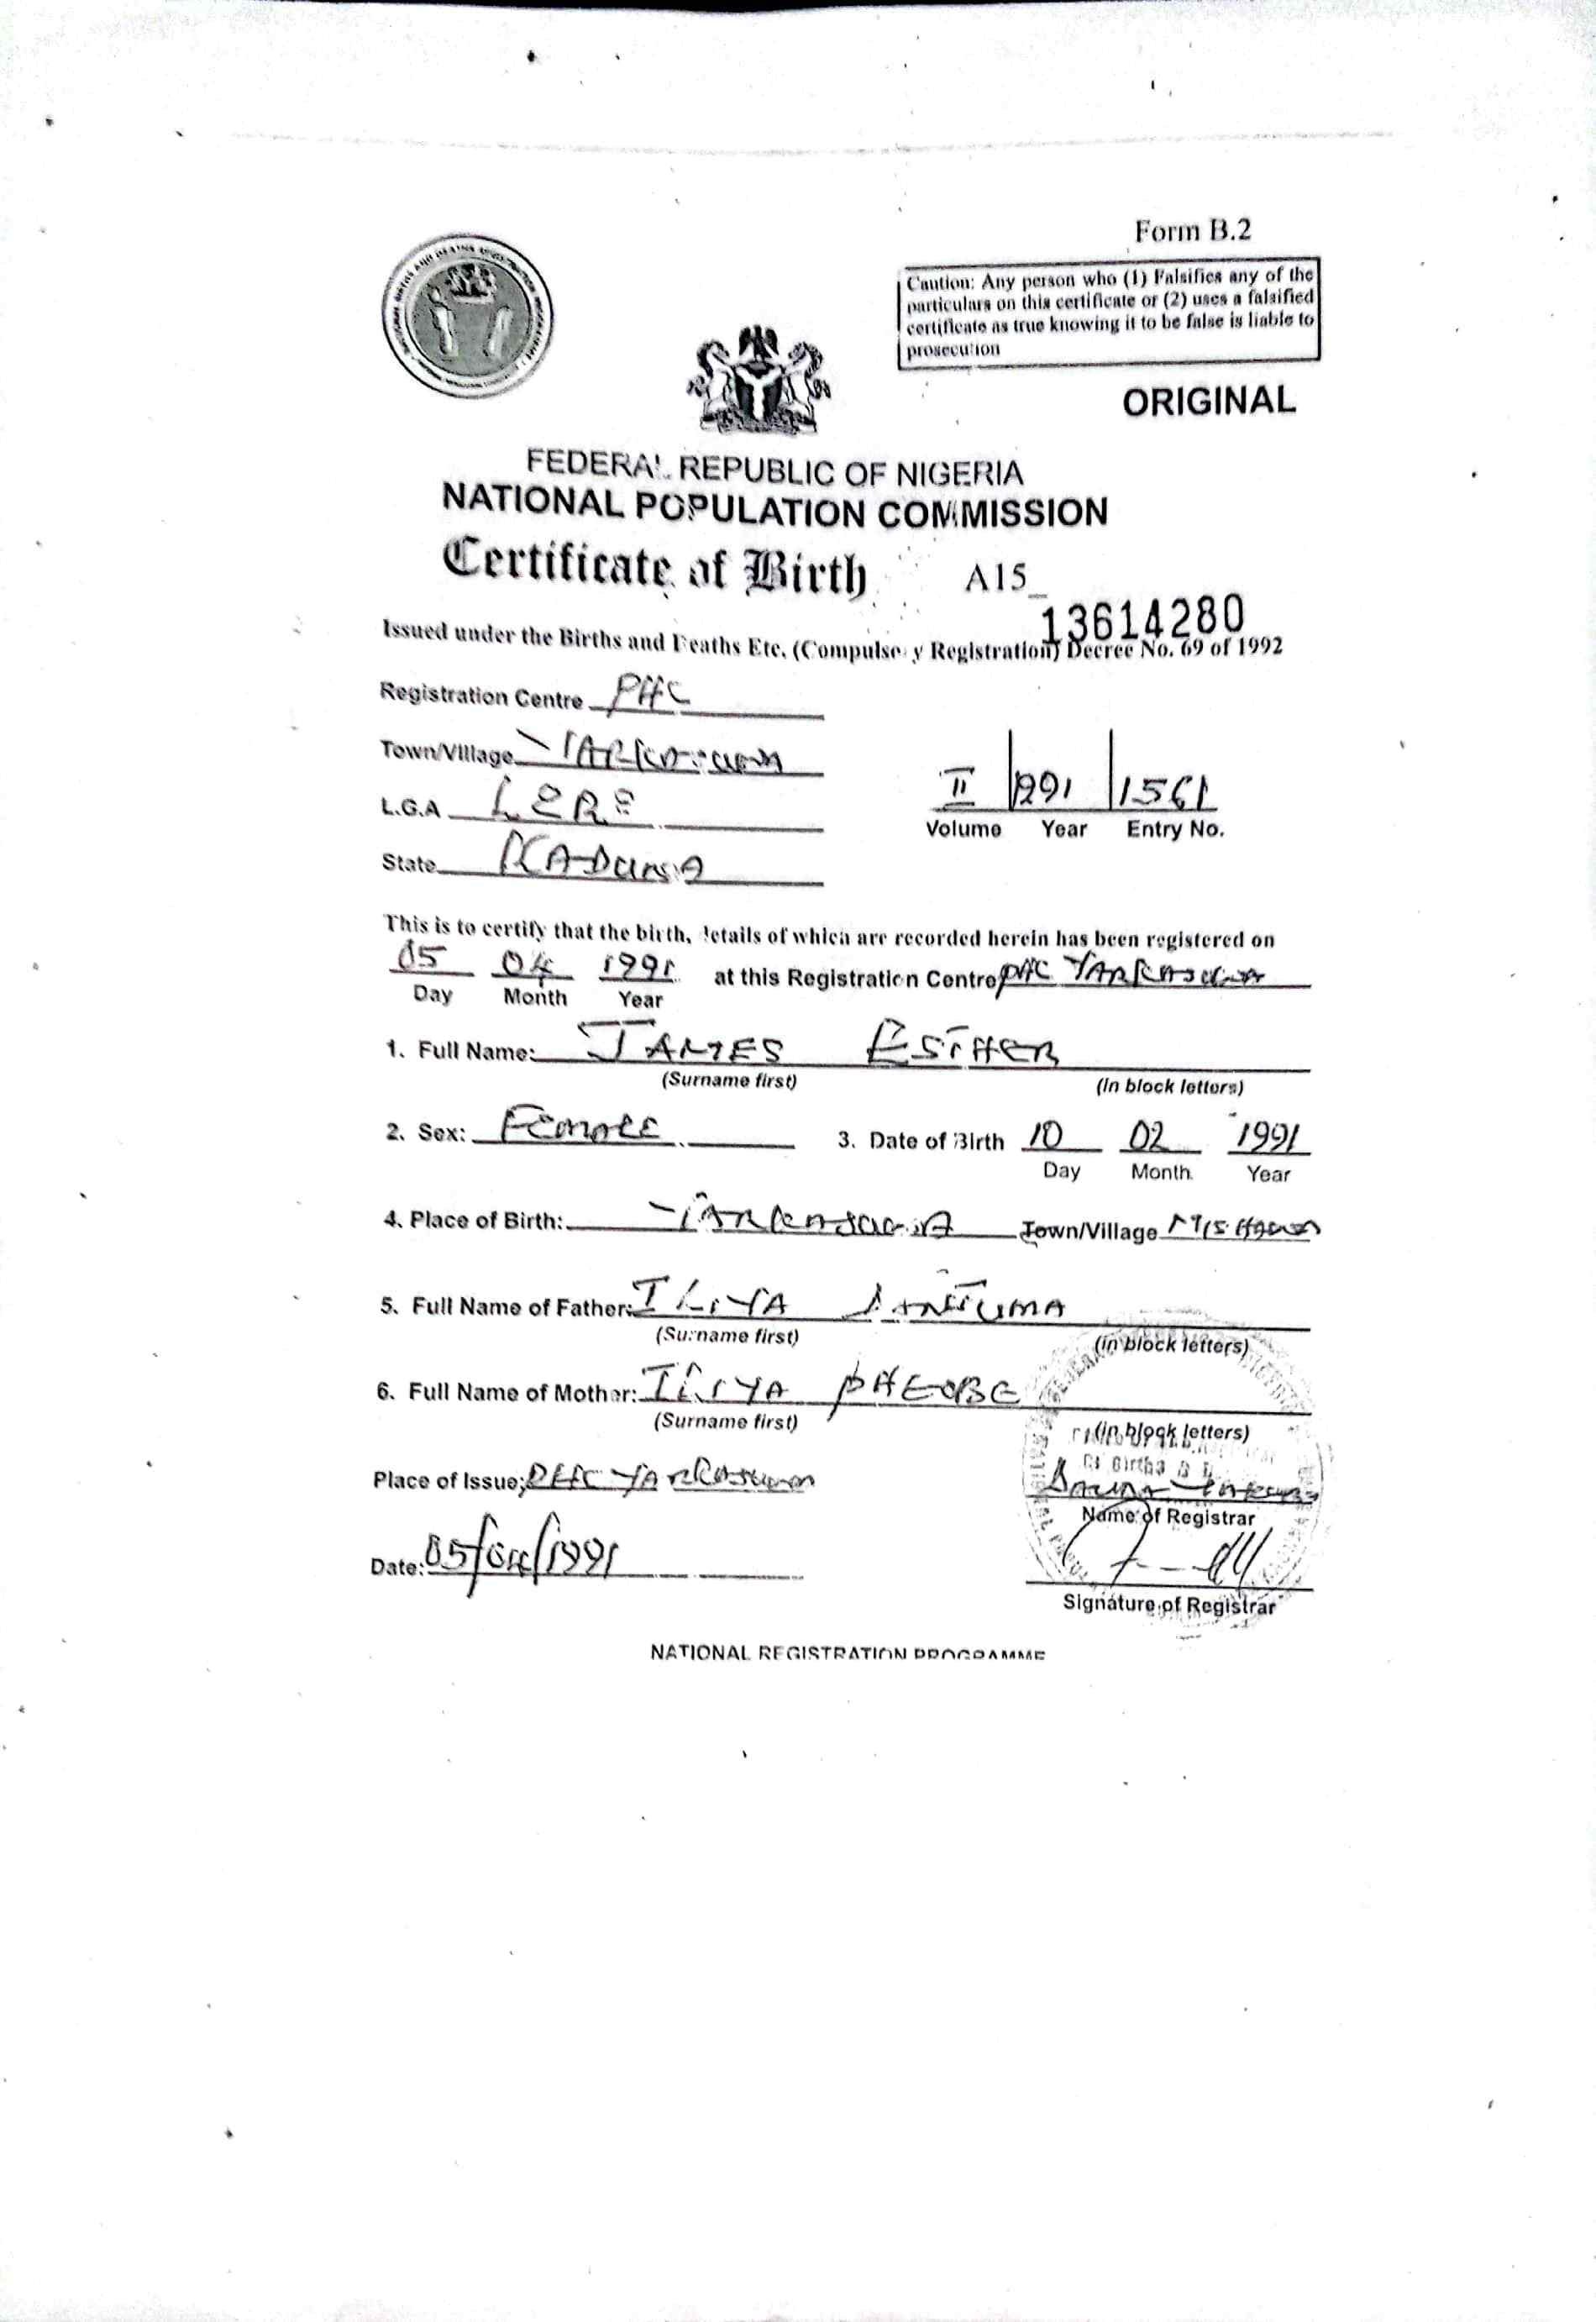 Form B.2
Caution: Any person who (1) Falsifies any of the
particulars on this certificate or (2) uses a falsified
certificate as true knowing it to be false is liable to
prosecution
ORIGINAL
FEDERAL REPUBLIC OF NIGERIA
NATIONAL POPULATION COMMISSION
Certificate of Birth A15
13614280
Issued under the Births and Deaths Etc. (Compulsory Registration) Decree No. 69 of 1992
Registration Centre PHC
Town/Village
L.G.A LERE
State KADUNA
II 1991 1561
Volume Year Entry No.
This is to certify that the birth, details of which are recorded herein has been registered on
05 04 1991 at this Registration Centre PHC YARKASUWA
Day Month Year
1. Full Name: JAMES ESTHER
(Surname first) (In block letters)
2. Sex: Female 3. Date of Birth 10 02 1991
Day Month Year
4. Place of Birth: YARKASUWA Town/Village
5. Full Name of Father: ILIYA
(Surname first) (in block letters)
6. Full Name of Mother: ILIYA PHEOBE
(Surname first) (in block letters)
Place of Issue; PHC YARKASUWA
Name of Registrar
Date: 05/04/1991
Signature of Registrar
NATIONAL REGISTRATION PROGRAMME